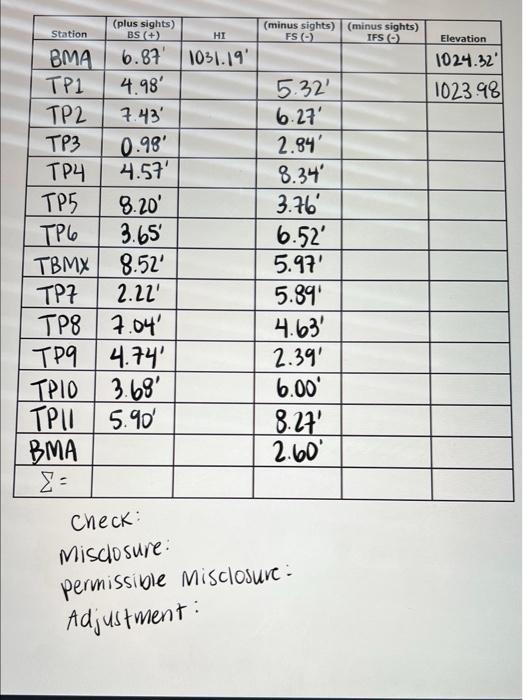 Station (plus sights) BS (+) HI (minus sights) FS (-) (minus sights) IFS (-) Elevation
BMA 6.87' 1031.19' 1024.32'
TP1 4.98' 5.32' 1023.98
TP2 7.43' 6.27'
TP3 0.98' 2.84'
TP4 4.57' 8.34'
TP5 8.20' 3.76'
TP6 3.65' 6.52'
TBMX 8.52' 5.97'
TP7 2.22' 5.89'
TP8 7.04' 4.63'
TP9 4.74' 2.39'
TP10 3.68' 6.00'
TP11 5.90' 8.27'
BMA 2.60'
Σ =
Check:
Misclosure:
permissible Misclosure:
Adjustment: